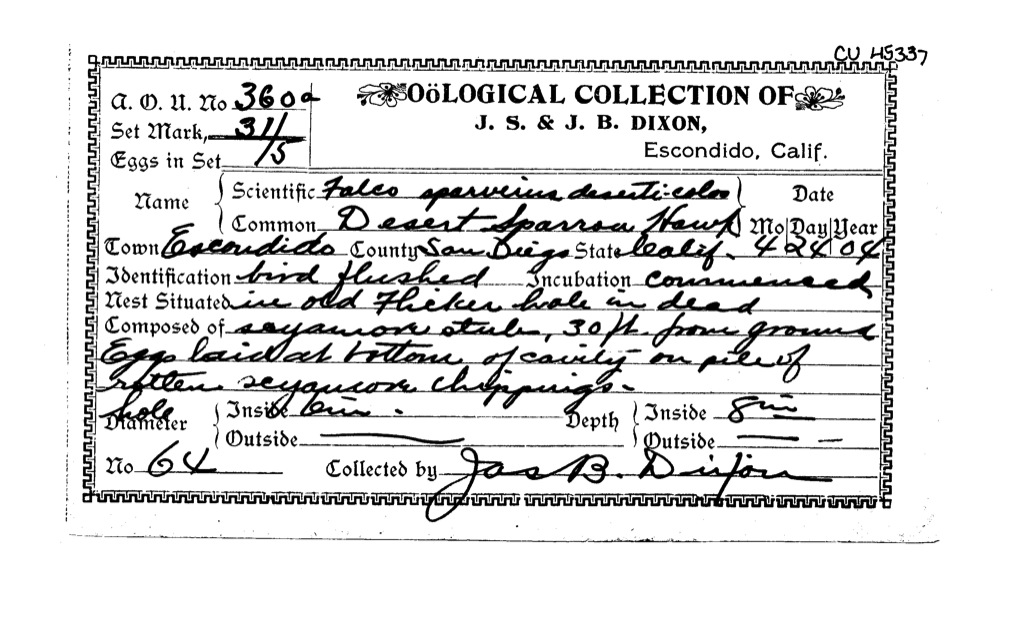 CU 45337
A. O. U. No 360a
OöLOGICAL COLLECTION OF
Set Mark, 31/
J. S. & J. B. DIXON,
Eggs in Set /5
Escondido, Calif.
Name Scientific Falco sparverius deserti-colus Date
Common Desert Sparrow Hawk Mo Day Year
Town Escondido County San Diego State Calif. 4 24 04
Identification bird flushed Incubation commenced
Nest Situated in old Flicker hole in dead
Composed of scyamore stub, 30 ft. from ground
Eggs laid at bottom of cavity on pile of
rotten scyamore chippings.
hole
Diameter Inside in. Depth Inside 8 in
Outside — Outside — –
No 64 Collected by Jas B. Dixon